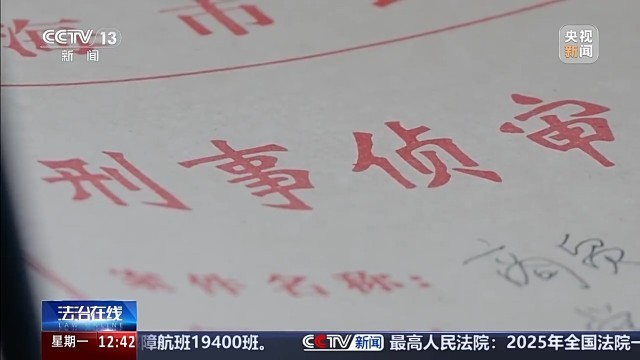 CCTV 13
新闻
央视
新闻
海市
刑事侦审
案件名称:
法治在线
LAW ONLINE
星期一 12:42 障航班19400班。 CCTV新闻 最高人民法院:2025年全国法院一